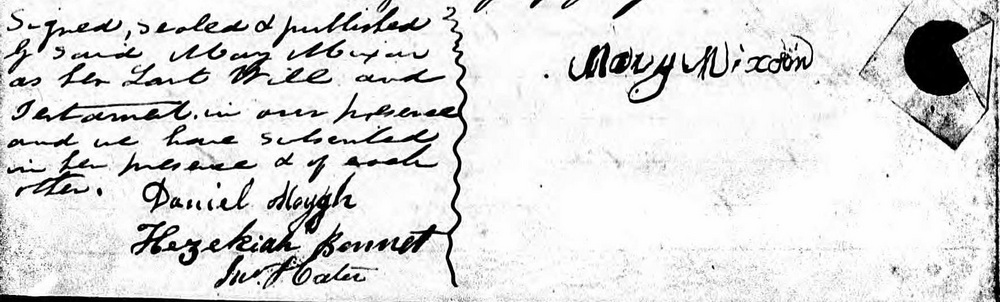 Signed, sealed & published
by said Mary Mixon
as her Last Will and
Testament in our presence
and we have subscribed
in her presence & of each
other.
Daniel
Hezekiah Bonnet
Jno.
Mary Mixon